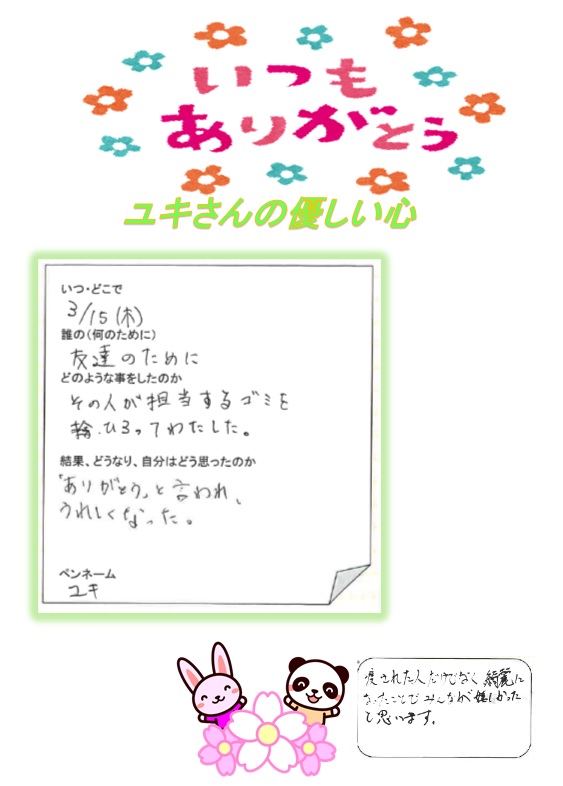 いつも
ありがとう
ユキさんの優しい心
いつ・どこで
3/15(木)
誰の(何のために)
友達のために
どのような事をしたのか
その人が担当するゴミを
ひろってわたした。
結果、どうなり、自分はどう思ったのか
「ありがとう」と言われ、
うれしくなった。
ペンネーム
ユキ
渡された人だけでなく綺麗に
なったことでみんなが嬉しかった
と思います。